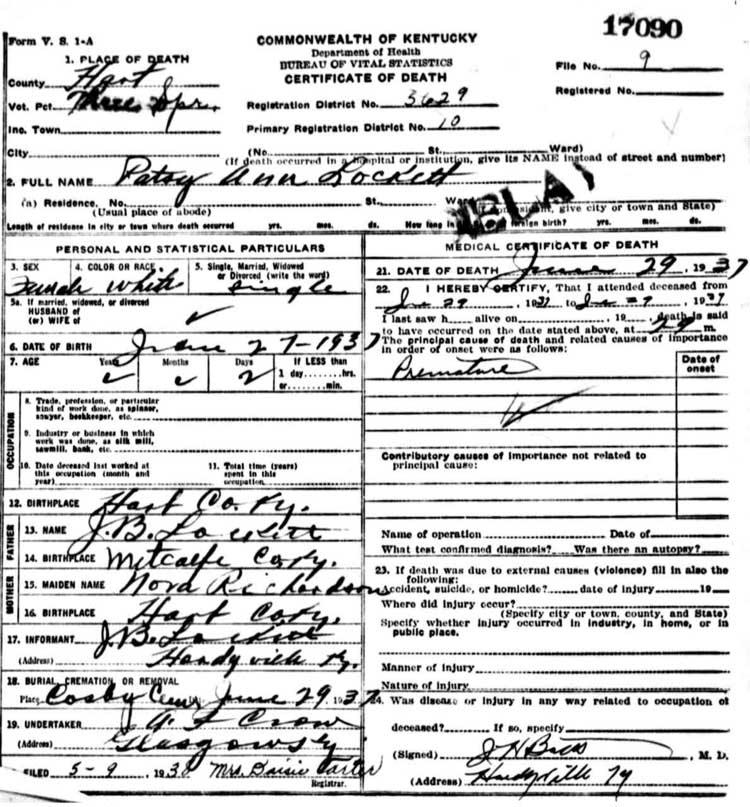 17090
Form V. S. 1-A
COMMONWEALTH OF KENTUCKY
Department of Health
BUREAU OF VITAL STATISTICS
CERTIFICATE OF DEATH
File No. 9
Registered No.
1. PLACE OF DEATH
County Hart
Vot. Pct. Three Spr.
Inc. Town
City
Registration District No. 3629
Primary Registration District No. 10
(No. St. Ward)
(If death occurred in a hospital or institution, give its NAME instead of street and number)
2. FULL NAME Patsy Ann Lockett
(a) Residence. No. St. Ward
(Usual place of abode) give city or town and State)
Length of residence in city or town where death occurred yrs. mos. ds. How long in foreign birth? yrs. mos. ds.
PERSONAL AND STATISTICAL PARTICULARS
3. SEX 4. COLOR OR RACE 5. Single, Married, Widowed or Divorced (write the word)
Female White Single
5a. If married, widowed, or divorced
HUSBAND of
(or) WIFE of
6. DATE OF BIRTH June 27-1937
7. AGE Years Months Days If LESS than
1 day........hrs.
2 or........min.
OCCUPATION
8. Trade, profession, or particular
kind of work done, as spinner,
sawyer, bookkeeper, etc.
9. Industry or business in which
work was done, as silk mill,
sawmill, bank, etc.
10. Date deceased last worked at
this occupation (month and
year)
11. Total time (years)
spent in this
occupation
12. BIRTHPLACE Hart Co. Ky.
FATHER
13. NAME J.B. Lockett
14. BIRTHPLACE Metcalfe Co. Ky.
MOTHER
15. MAIDEN NAME Nora Richardson
16. BIRTHPLACE Hart Co Ky.
17. INFORMANT J.B. Lockett
(Address) Hardyville Ky.
18. BURIAL, CREMATION OR REMOVAL
Place Cosby Cem June 29 1937
19. UNDERTAKER A F Crow
(Address) Glasgow Ky
FILED 5-9, 1938 Mrs. Daisie Carter
Registrar.
MEDICAL CERTIFICATE OF DEATH
21. DATE OF DEATH June 29, 1937
22. I HEREBY CERTIFY, That I attended deceased from
29, 1937 to 29, 1937
I last saw h alive on , 19 , death is said
to have occurred on the date stated above, at m.
The principal cause of death and related causes of importance
in order of onset were as follows:
Date of
onset
Premature
Contributory causes of importance not related to
principal cause:
Name of operation Date of
What test confirmed diagnosis? Was there an autopsy?
23. If death was due to external causes (violence) fill in also the
following:
Accident, suicide, or homicide? date of injury 19
Where did injury occur?
(Specify city or town, county, and State)
Specify whether injury occurred in industry, in home, or in
public place.
Manner of injury
Nature of injury
24. Was disease or injury in any way related to occupation of
deceased? If so, specify
(Signed) M. D.
(Address) Hardyville Ky